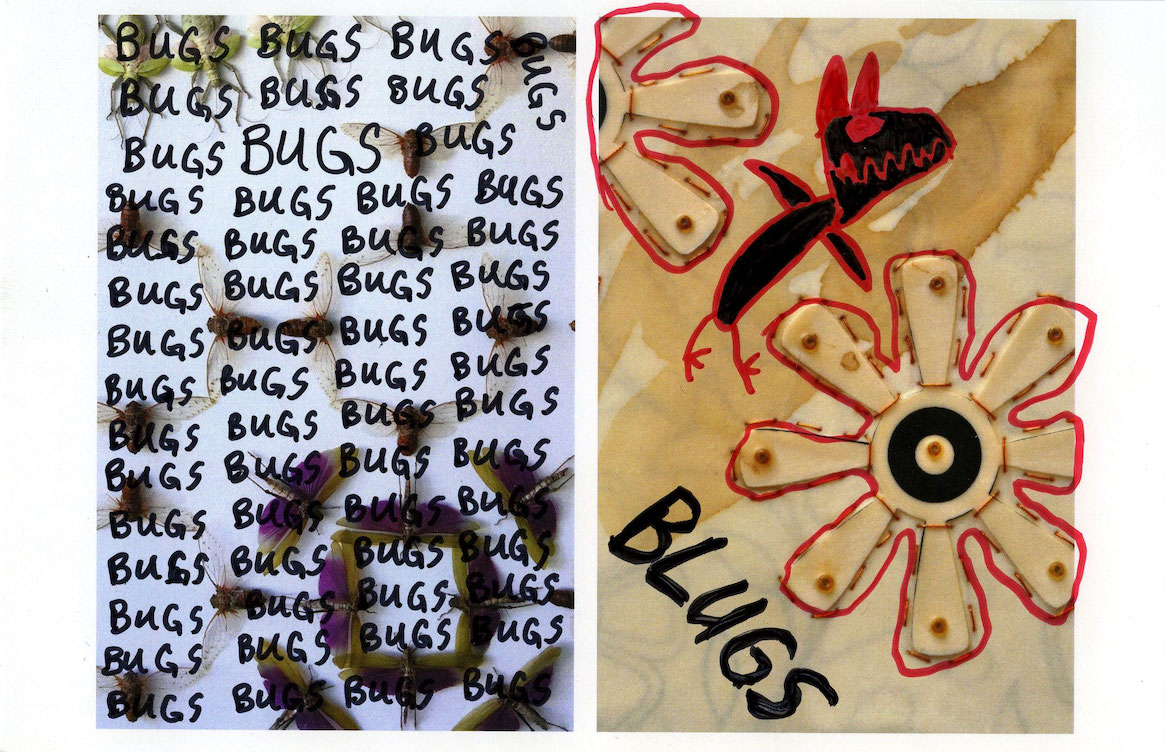 BUGS BUGS BUGS BUGS
BUGS BUGS BUGS
BUGS BUGS BUGS
BUGS BUGS BUGS BUGS
BUGS BUGS BUGS BUGS
BUGS BUGS BUGS BUGS
BUGS BUGS BUGS BUGS
BUGS BUGS BUGS BUGS
BUGS BUGS BUGS BUGS
BUGS BUGS BUGS BUGS
BUGS BUGS BUGS BUGS
BUGS BUGS BUGS BUGS
BUGS BUGS BUGS BUGS
BUGS BUGS BUGS BUGS
BUGS BUGS BUGS BUGS
BLUGS